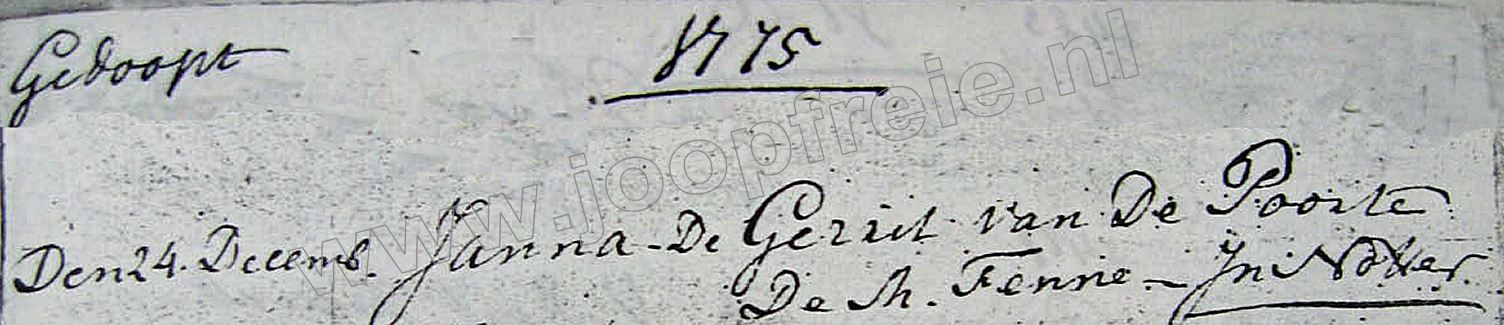 Gedoopt 1775
Den 24. Decemb. Janna - De Gerrit van De Poorte
De M. Fenne - In Notter
www.joopfreie.nl